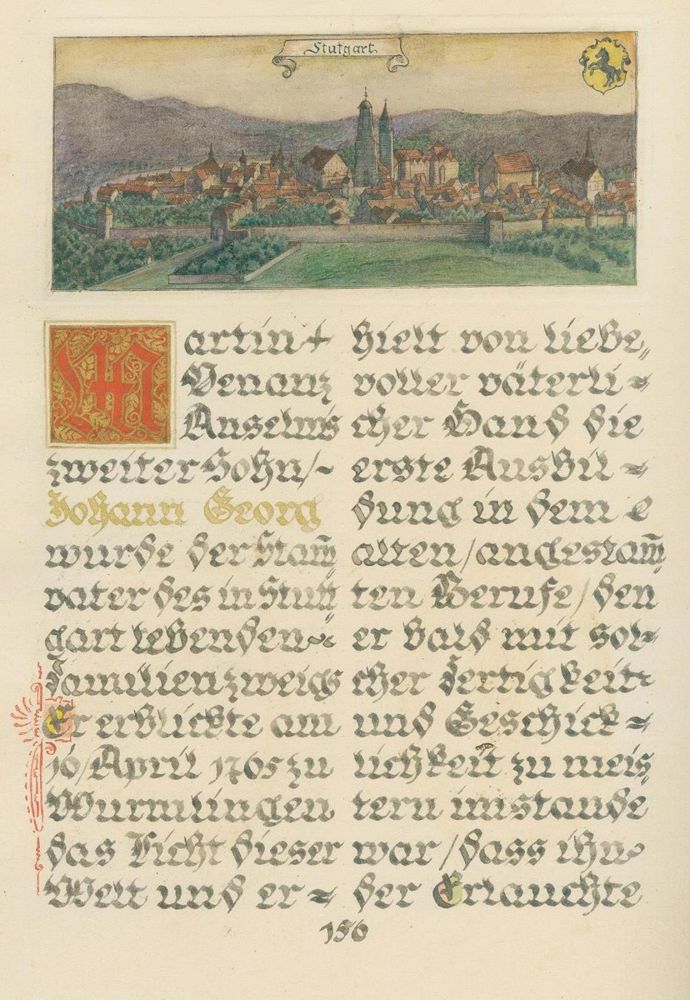 Stutgart
Martin
Venanz
Anselms
zweiter Sohn/
Johann Georg
wurde der Stam̄
vater des in Stutt
gart lebenden
Familienzweigs
Er erblickte am
16/April 1765 zu
Wurmlingen
das Licht dieser
Welt und er=
hielt von liebe„
voller väterli=
cher Hand die
erste Ausbil=
dung in dem
alten/angestam̄
ten Berufe/den
er bald mit sol=
cher Fertigkeit
und Geschick=
lichkeit zu meis
tern imstande
war/dass ihn
der Erlauchte
156